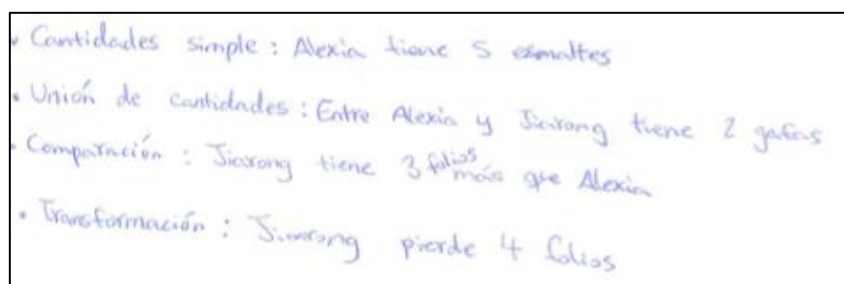 • Cantidades simple : Alexia tiene 5 esmaltes
• Unión de cantidades : Entre Alexia y Jiarong tiene 2 gafas
• Comparación : Jiarong tiene 3 folios más que Alexia
• Transformación : Jiarong pierde 4 folios